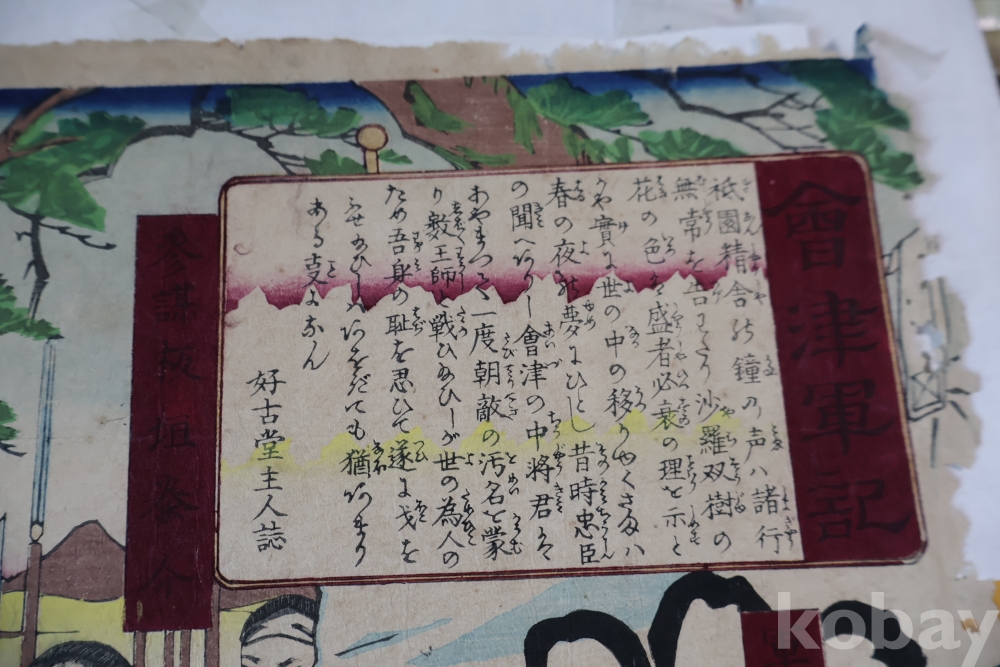 會津軍記
祇園精舎の鐘の声ハ諸行
無常を告わたり沙羅双樹の
花の色ハ盛者必衰の理を示と
かや實に世の中の移りゆくさまハ
春の夜の夢にひとし昔時忠臣
の聞へありし會津の中将君ハ
あやまつて一度朝敵の汚名を蒙
り数王師と戦ひあひしが世の為人の
ため吾身の恥を思ひて遂に戈を
ふせ
も猶あまり
ある事になん
好古堂主人誌
參謀板垣
kobay